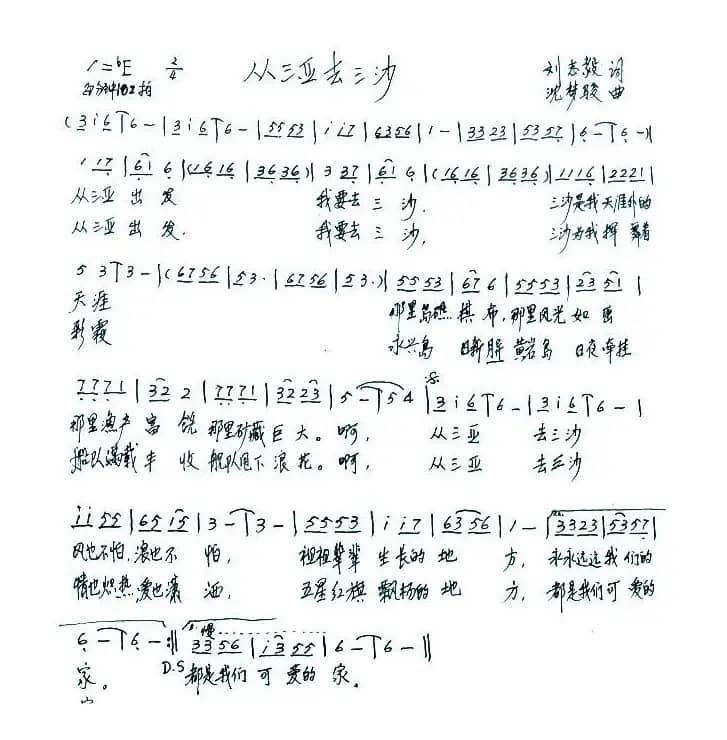 从三亚去三沙
1=ᵇE 2/4
每分钟102拍
刘志毅 词
沈梦骏 曲
(3 i 6 | 6 - | 3 i 6 | 6 - | 5553 | i i7 | 6356 | 1 - | 3323 | 5357 | 6 - | 6 - )|
1 17 | 61 6 | (1616 | 3636) | 3 37 | 61 6 | (1616 | 3636) | 1116 | 2221 |
从三亚 出 发 我要去 三 沙. 三沙是我天涯外的
从三亚 出 发. 我要去 三 沙, 三沙为我挥舞着
5 3 | 3 - | (6756 | 53· | 6756 | 53·) | 5553 | 67 6 | 5553 | 23 51 |
天涯 那里岛礁 棋 布, 那里风光 如 画
彩霞 永兴岛 日新月异 黄岩岛 日夜牵挂
7771 | 32 2 | 7771 | 32 23 | 5 - | 5 4 | 3 i 6 | 6 - | 3 i 6 | 6 - |
那里渔产 富 饶 那里矿藏 巨 大。啊, 从三亚 去三沙
船队满载 丰 收 舰队甩下 浪 花。啊, 从三亚 去三沙
i i 55 | 65 i5 | 3 - | 3 - | 5553 | i i7 | 63 56 | 1 - | 3323 | 5357 |
风也不怕, 浪也不 怕, 祖祖辈辈 生长的 地 方, 永永远远 我们的
晴也炽热 爱也潇 洒, 五星红旗 飘扬的 地 方, 都是我们可 爱的
6 - | 6 - :|| 慢 3356 | i 3 55 | 6 - | 6 - ||
家。 D.S 都是我们 可 爱的 家.